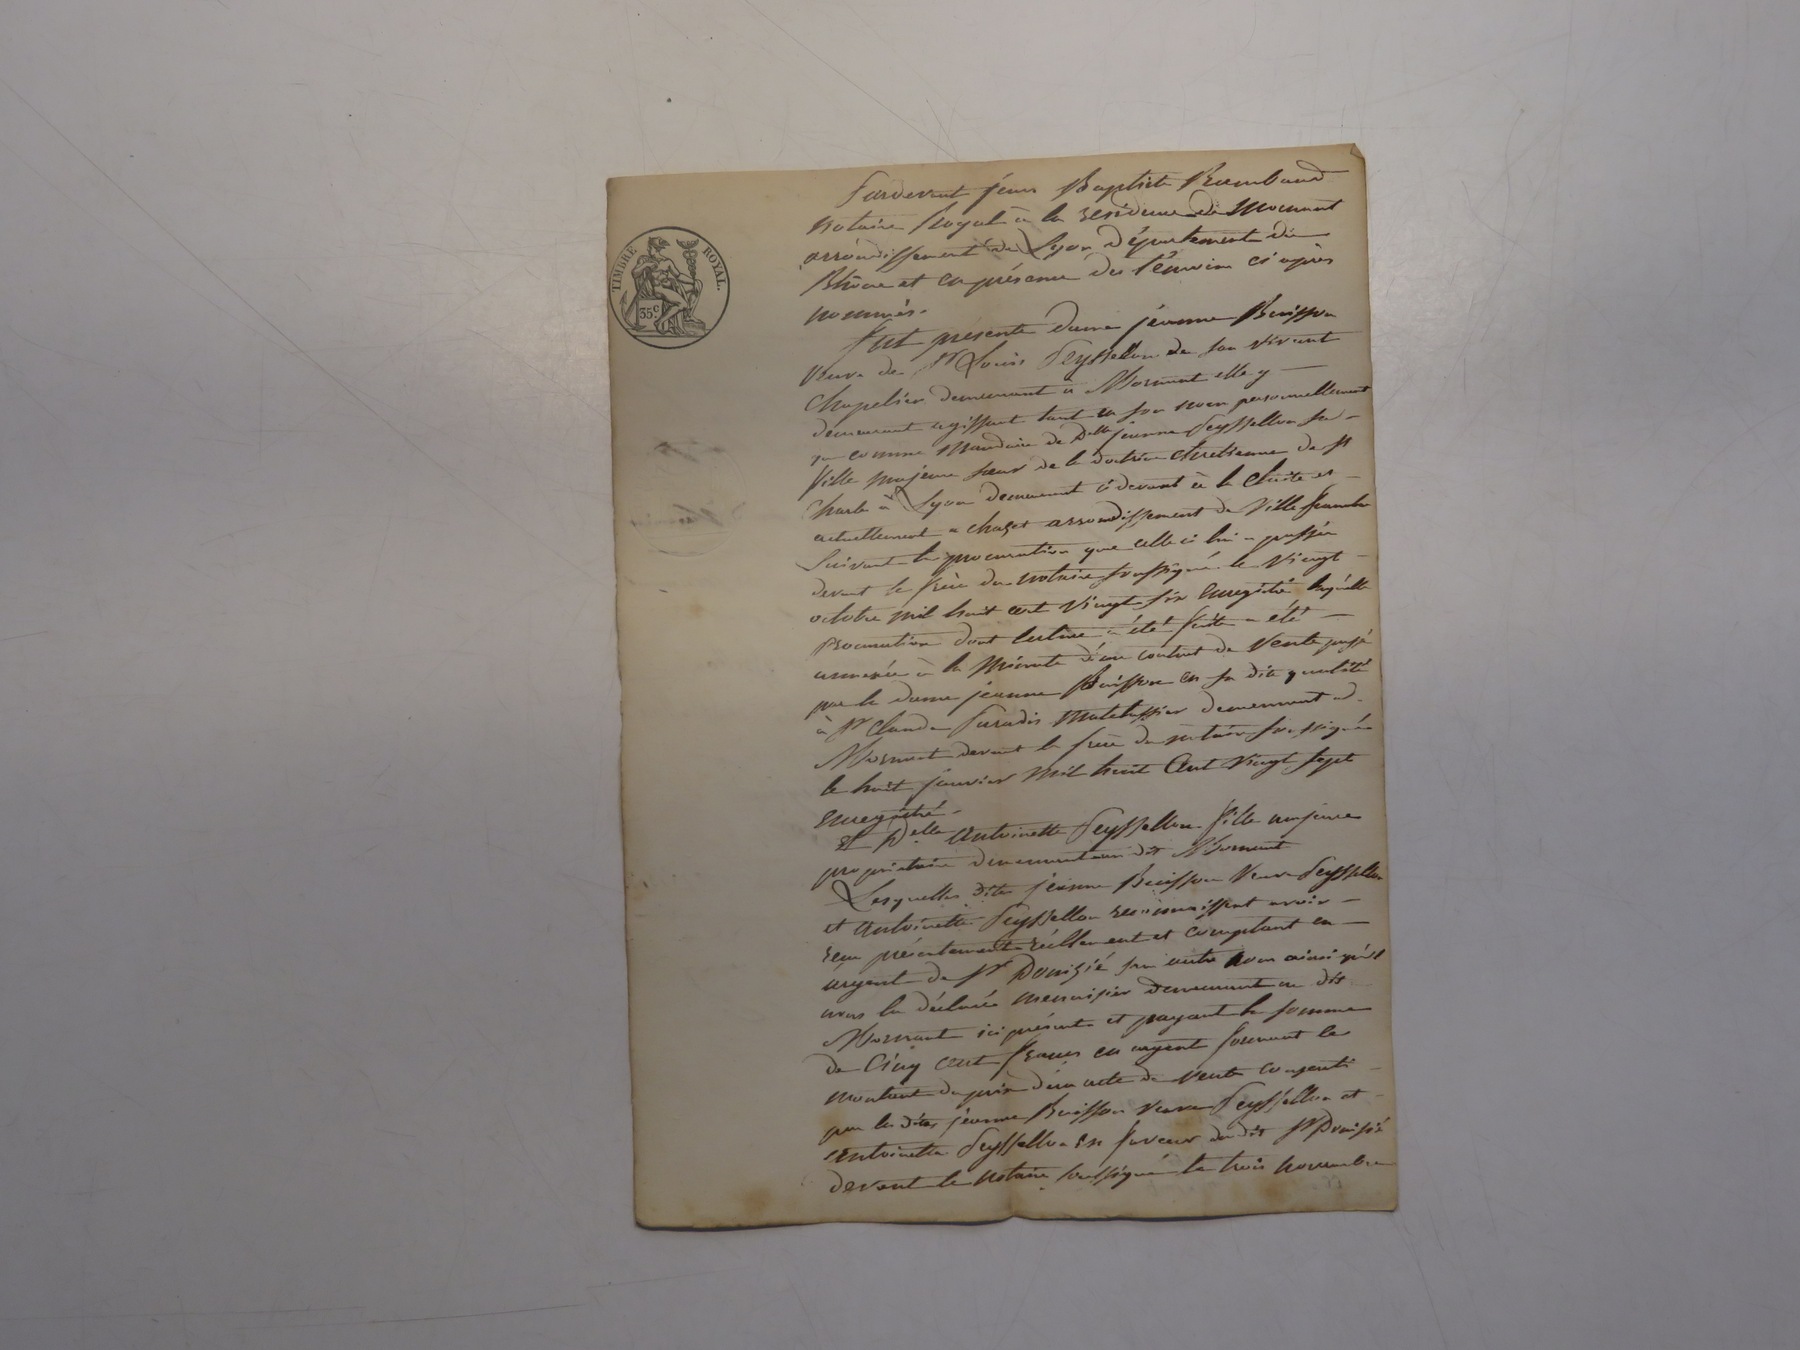 TIMBRE ROYAL.
35c
Pardevant jean Baptiste Rambaud
notaire Royal à la residence de Mornant
arrondissement de Lyon département du
Rhône et en présence des témoins ci après
nommés.
fut présente dame jeanne Buisson
Veuve de Sr Louis Peyssellon de son vivant
Chapelier demeurant à Mornant elle y
demeurant agissant tant en son nom personnellement
que comme Mandaire de Delle jeanne Peyssellon sa
fille majeure sœur de la doctrine chretienne de St
Charle à Lyon demeurant ci devant à la et
actuellement a chazet arrondissement de Ville franche
Suivant la procuration que celle ci lui a passée
devant le frère du notaire soussigné le Vingt
octobre mil huit cent Vingt six enregistré laquelle
procuration dont lecture a été faite a été
annexée à la Minute d'un contrat de Vente passé
par la dame jeanne Buisson en sa dite qualité
à Sr Claude Paradis Matelassier demeurant ad.
Mornant devant le frère du notaire soussigné
le huit janvier Mil huit Cent Vingt sept
enregistré.
Et Delle Antoinette Peyssellon fille majeure
propriétaire demeurant au dit Mornant
Lesquelles dites jeanne Buisson Veuve Peyssellon
et Antoinette Peyssellon reconnaissent avoir
reçu présentement réellement et comptant en
argent de Sr Donizié sans autre nom ainsi qu'il
nous la déclaré menuisier demeurant au dit
Mornant ici présent et payant la somme
de Cinq cent francs en argent formant le
montant du prix d'un acte de Vente consenti
par les dites jeanne Buisson veuve Peyssellon et
Antoinette Peyssellon en faveur du dit Sr Donizié
devant le notaire soussigné le trois novembre